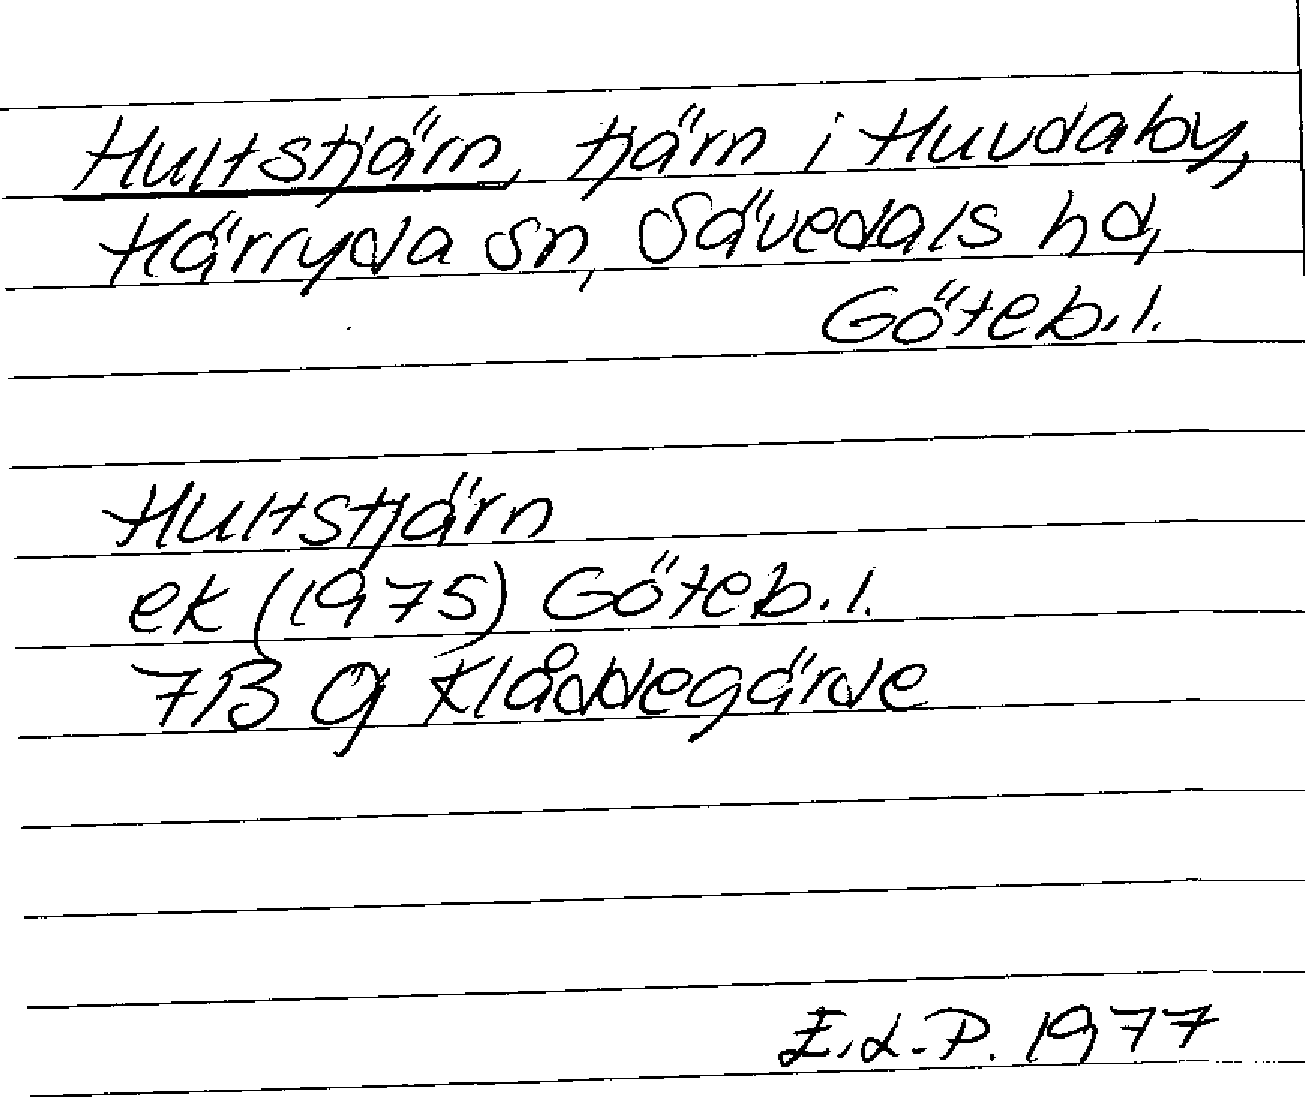 Hultstjärn, tjärn i Huvdaby,
Härryda sn, Sävedals hd,
Göteb.l.
Hultstjärn
ek (1975) Göteb.l.
7B 9j Klåddegärde
E.L.P. 1977